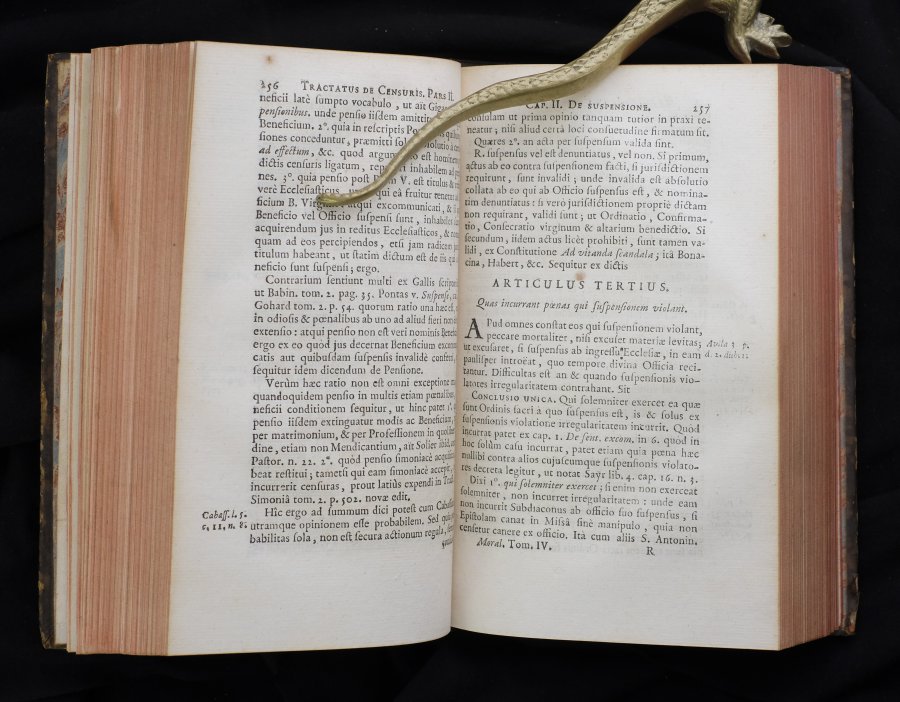 256 TRACTATUS DE CENSURIS. PARS II.
neficii latè sumpto vocabulo , ut ait
pensionibus. unde pensio iisdem
Beneficium. 2°. quia in rescriptis
siones conceduntur, præmitti
ad effectum, &c. quod est
dictis censuris ligatum, inhabilem
nes. 3°. quia pensio post V. est titulus
verè Ecclesiasticus, quia qui eâ fruitur
ficium B. atqui excommunicati, &
Beneficio vel Officio suspensi sunt, inhabiles
acquirendum jus in reditus Ecclesiasticos, &
quam ad eos percipiendos, etsi jam radicem
titulum habeant, ut statim dictum est de iis
neficio sunt suspensi; ergo.
Contrarium sentiunt multi ex Gallis
ut Babin. tom. 2. pag. 35. Pontas v. Suspense,
Gohard tom. 2. p. 54. quorum ratio una hæc
in odiosis & pœnalibus ab uno ad aliud fieri
extensio : atqui pensio non est veri nominis
ergo ex eo quòd jus decernat Beneficium
catis aut quibusdam suspensis invalidè conferri,
sequitur idem dicendum de Pensione.
Verùm hæc ratio non est omni exceptione
quandoquidem pensio in multis etiam
neficii conditionem sequitur, ut hinc patet 1°.
pensio iisdem extinguatur modis ac Beneficium,
per matrimonium, & per Professionem in
dine, etiam non Mendicantium, ait Solier ibid.
Pastor. n. 22. 2°. quòd pensio simoniacè
beat restitui; tametsi qui eam simoniacè
incurrerit censuras, prout latiùs expendi in
Simoniâ tom. 2. p. 502. novæ edit.
Cabass. l. 5.
c. 11, n. 8.
Hîc ergo ad summum dici potest cum
utramque opinionem esse probabilem. Sed
babilitas sola, non est secura actionum regula,
CAP. II. DE SUSPENSIONE. 257
consulam ut prima opinio tanquam tutior in praxi te-
neatur; nisi aliud certâ loci consuetudine firmatum sit.
Quæres 2°. an acta per suspensum valida sint.
R. suspensus vel est denuntiatus, vel non. Si primum,
actus ab eo contra suspensionem facti, si jurisdictionem
requirunt, sunt invalidi; unde invalida est absolutio
collata ab eo qui ab Officio suspensus est, & nomina-
tim denuntiatus: si verò jurisdictionem propriè dictam
non requirant, validi sunt; ut Ordinatio, Confirma-
tio, Consecratio virginum & altarium benedictio. Si
secundum, iidem actus licèt prohibiti, sunt tamen va-
lidi, ex Constitutione Ad vitanda scandala; ità Bona-
cina, Habert, &c. Sequitur ex dictis
ARTICULUS TERTIUS.
Quas incurrant pœnas qui suspensionem violant.
APud omnes constat eos qui suspensionem violant,
peccare mortaliter, nisi excuset materiæ levitas;
Avila 3. p.
d. 2. dub.
ut excusaret, si suspensus ab ingressu Ecclesiæ, in eam
paulisper introëat, quo tempore divina Officia reci-
tantur. Difficultas est an & quando suspensionis vio-
latores irregularitatem contrahant. Sit
CONCLUSIO UNICA. Qui solemniter exercet ea quæ
sunt Ordinis sacri à quo suspensus est, is & solus ex
suspensionis violatione irregularitatem incurrit. Quòd
incurrat patet ex cap. 1. De sent. excom. in 6. quòd in
hoc solùm casu incurrat, patet etiam quia pœna hæc
nullibi contra alios cujuscumque suspensionis violato-
res decreta legitur, ut notat Sayr lib. 4. cap. 16. n. 3.
Dixi 1°. qui solemniter exercet; si enim non exerceat
solemniter, non incurret irregularitatem : unde eam
non incurrit Subdiaconus ab officio suo suspensus, si
Epistolam canat in Missâ sine manipulo, quia non
censetur canere ex officio. Ità cum aliis S. Antonin.
Moral. Tom. IV. R